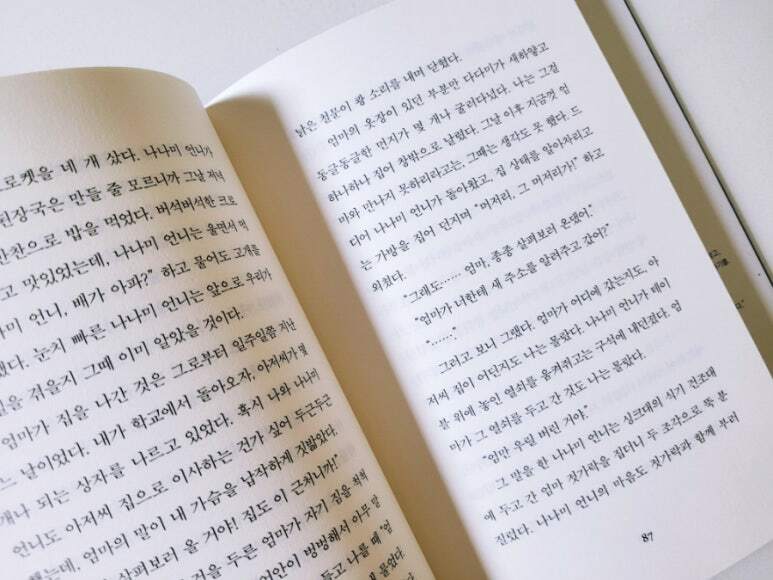 로켓을 네 개 샀다. 나나미 언니가
된장국은 만들 줄 모르니까 그날 저녁
반찬으로 밥을 먹었다. 버석버석한 크로
고 맛있었는데, 나나미 언니는 울면서 먹
미 언니, 배가 아파?" 하고 물어도 고개를
했다. 눈치 빠른 나나미 언니는 앞으로 우리가
을 겪을지 그때 이미 알았을 것이다.
엄마가 짐을 나간 것은 그로부터 일주일쯤 지난
느 날이었다. 내가 학교에서 돌아오자, 아저씨가 몇
개나 되는 상자를 나르고 있었다. 혹시 나와 나나미
언니도 아저씨 집으로 이사하는 건가 싶어 두근두근
했는데, 엄마의 말이 내 가슴을 납작하게 짓밟았다.
살펴보러 올 거야! 집도 이 근처니까!"
을 두른 엄마가 자기 짐을 척척
안이 벙벙해서 아무 말
들고 나를 때 "엄
물었다.
낡은 철문이 쾅 소리를 내며 닫혔다.
엄마의 옷장이 있던 부분만 다다미가 새하얗고
동글동글한 먼지가 몇 개나 굴러다녔다. 나는 그걸
하나하나 집어 창밖으로 날렸다. 그날 이후 지금껏 엄
마와 만나지 못하리라고는, 그때는 생각도 못 했다. 드
디어 나나미 언니가 돌아왔고, 집 상태를 알아차리고
는 가방을 집어 던지며 "머저리, 그 머저리가!" 하고
외쳤다.
"그래도…… 엄마, 종종 살펴보러 온댔어."
"엄마가 너한테 새 주소를 알려주고 갔어?"
"……."
그러고 보니 그랬다. 엄마가 어디에 갔는지도, 아
저씨 집이 어딘지도 나는 몰랐다. 나나미 언니가 테이
블 위에 놓인 열쇠를 움켜쥐고는 구석에 내던졌다. 엄
마가 그 열쇠를 두고 간 것도 나는 몰랐다.
"엄만 우릴 버린 거야."
그 말을 한 나나미 언니는 싱크대의 식기 건조대
에 두고 간 엄마 젓가락을 집더니 두 조각으로 뚝 분
질렀다. 나나미 언니의 마음도 젓가락과 함께 부러
87